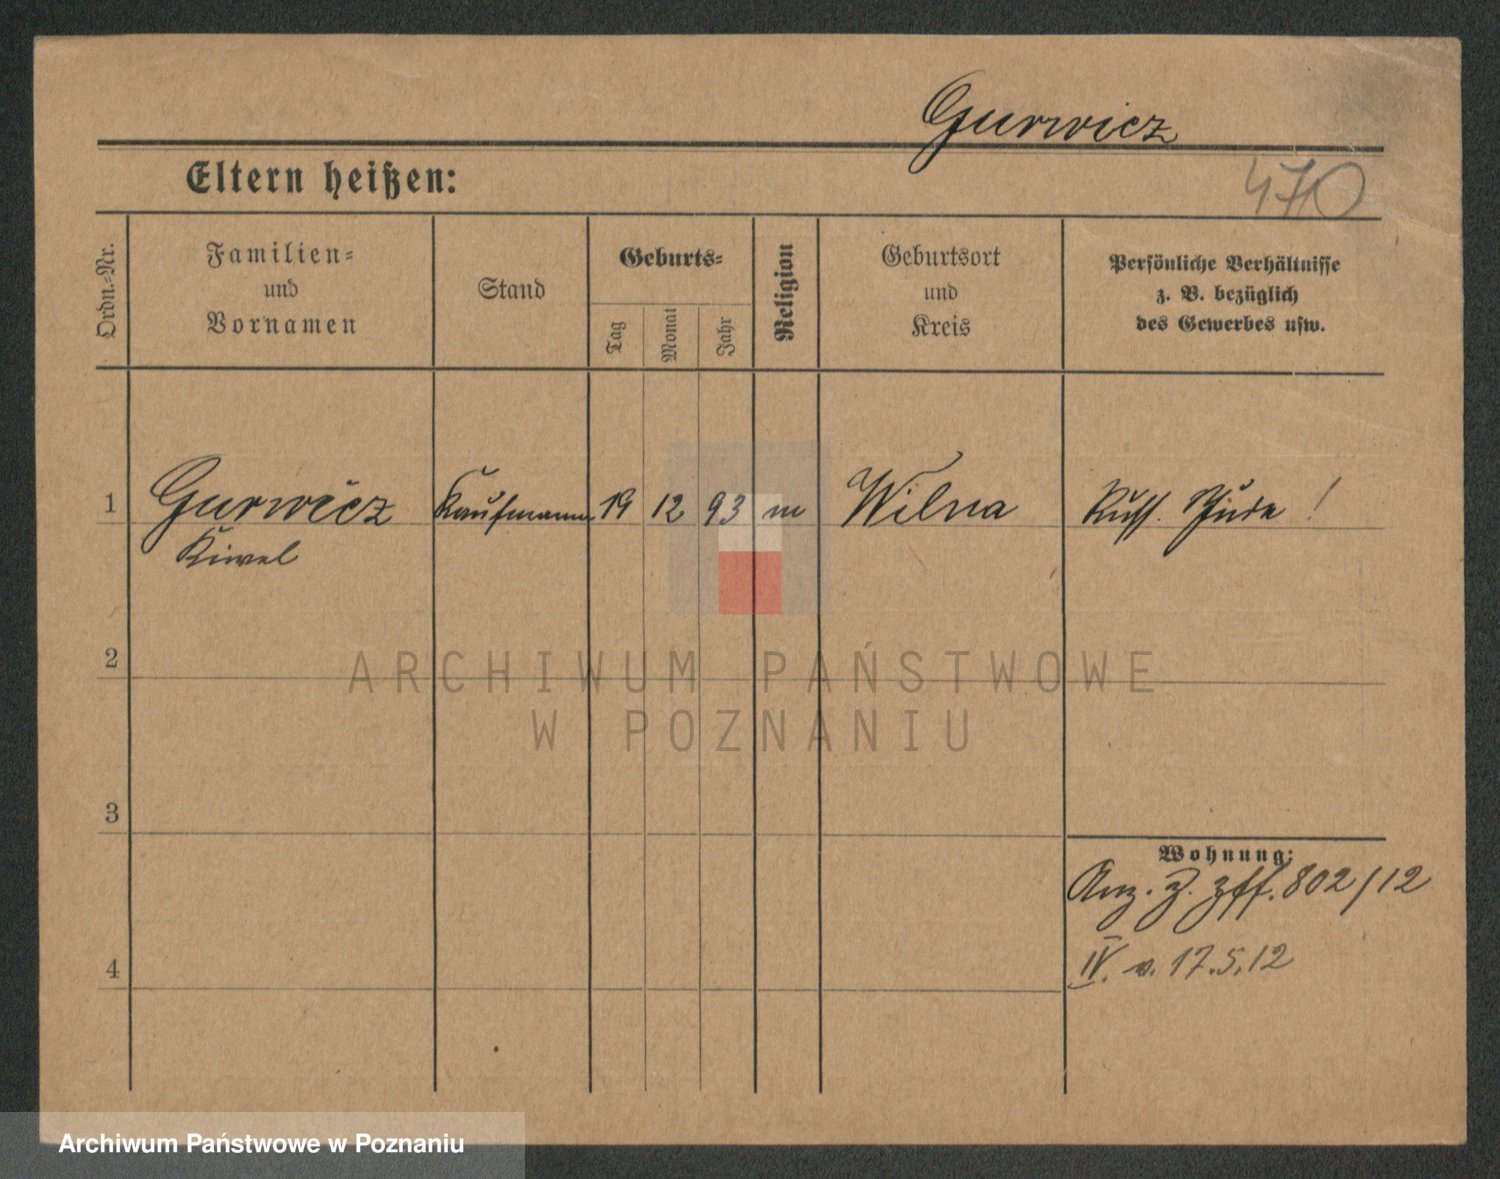 Gurwicz
470
Eltern heißen:
Ordn.-Nr.
Familien-
und
Vornamen
Stand
Geburts-
Tag
Monat
Jahr
Religion
Geburtsort
und
Kreis
Persönliche Verhältnisse
z. B. bezüglich
des Gewerbes usw.
1 Gurwicz Kaufmann 19 12 93 m Wilna Russ. Jude !
Kiwel
2
ARCHIWUM PAŃSTWOWE
W POZNANIU
3
Wohnung:
Anz. Z. 802/12
4
IV. v. 17.5.12
Archiwum Państwowe w Poznaniu